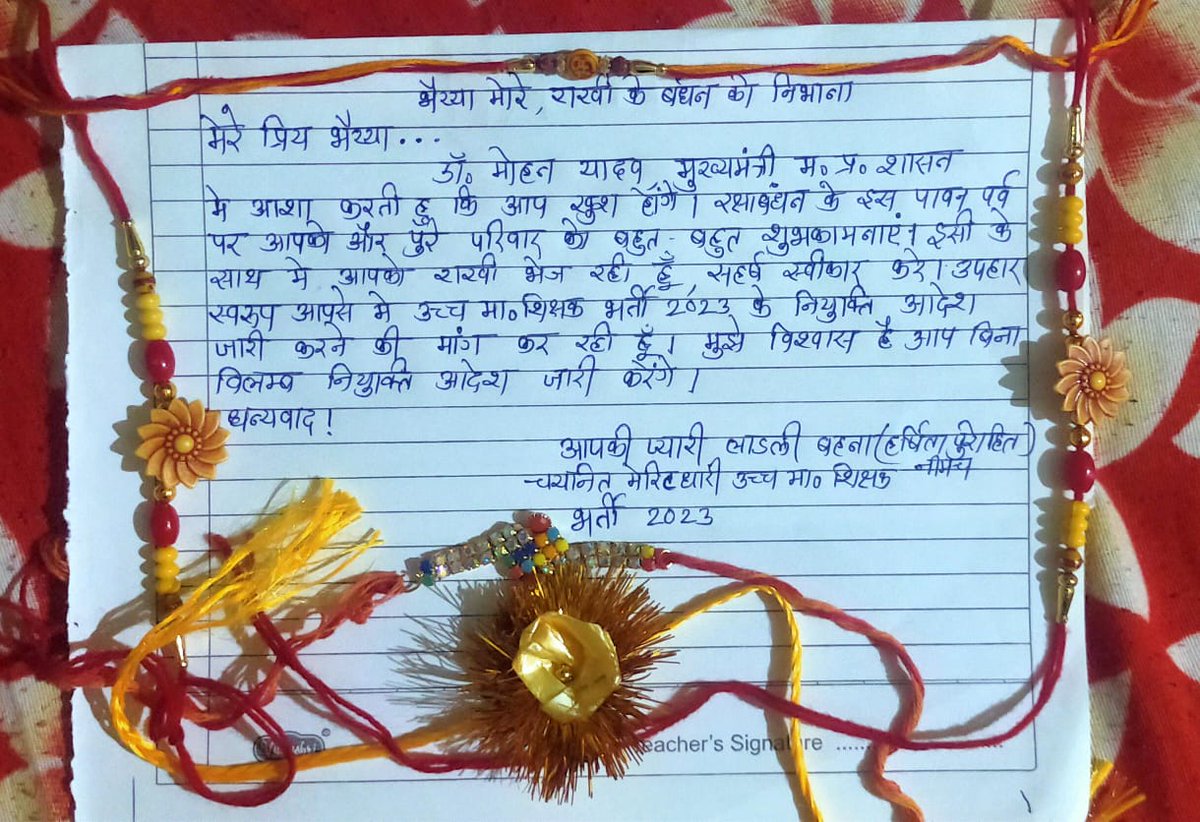 भैय्या मोरे, राखी के बंधन को निभाना
मेरे प्रिय भैय्या...
डॉ. मोहन यादव मुख्यमंत्री म. प्र. शासन
मे आशा करती हु कि आप खुश होंगें। रक्षाबंधन के इस पावन पर्व
पर आपको और पुरे परिवार को बहुत-बहुत शुभकामनाएं। इसी के
साथ मे आपको राखी भेज रही हूँ, सहर्ष स्वीकार करे। उपहार
स्वरुप आपसे मे उच्च मा० शिक्षक भर्ती 2023 के नियुक्ति आदेश
जारी करने की मांग कर रही हूँ। मुझे विश्वास है आप बिना
विलम्ब नियुक्ति आदेश जारी करेंगे।
धन्यवाद!
आपकी प्यारी लाडली बहना (हर्षिता पुरोहित)
चयनित मेरिटधारी उच्च मा० शिक्षक नीमच
भर्ती 2023
Teacher's Signature ........